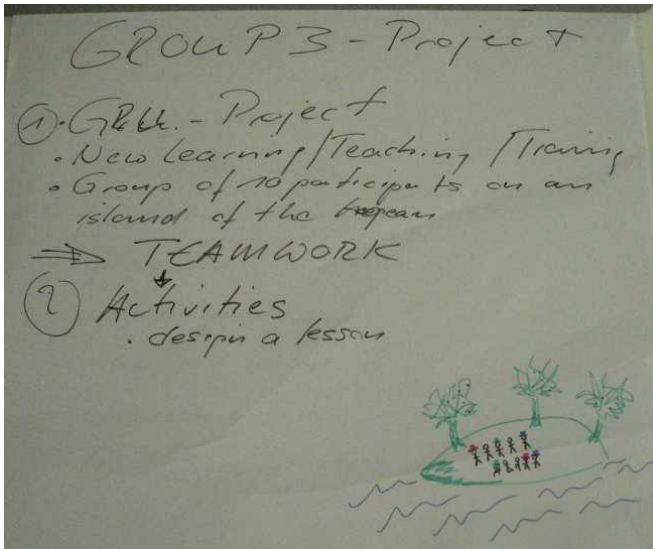 GROUP 3 - Project
① · - Project
· New Learning / Teaching / Training
· Group of 10 participants on an
island of the
⇒ TEAMWORK
② Activities
· design a lesson